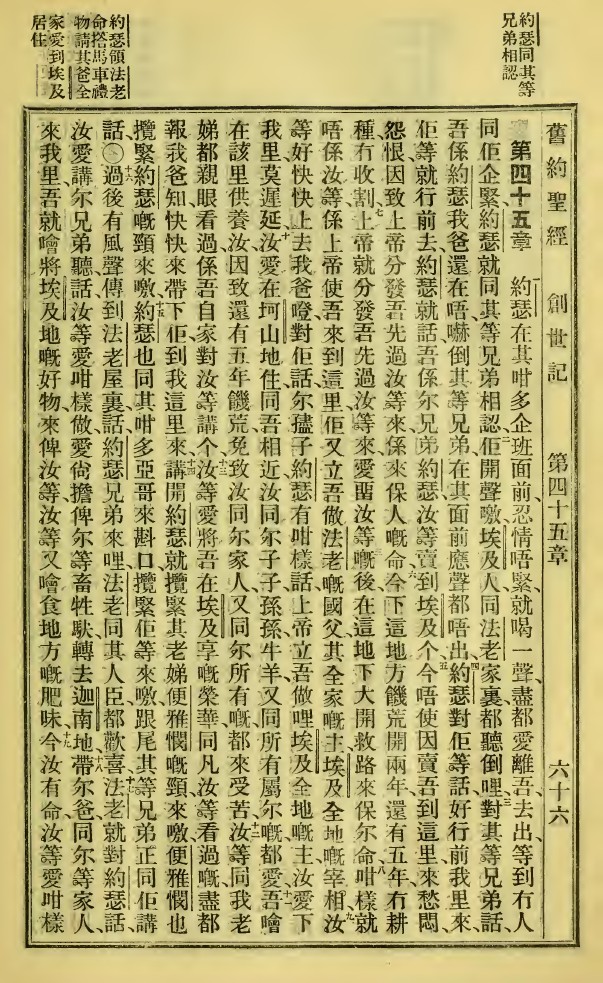 約瑟同其等
兄弟相認
約瑟領法老
命搭馬車禮
物請其爸全
家愛到埃及
居住
舊約聖經 創世記 第四十五章 六十六
第四十五章 一約瑟在其咁多企班面前、忍情唔緊、就喝一聲、盡都愛離吾去出、等到冇人
同佢企緊、約瑟就同其等兄弟相認、二佢開聲噭、埃及人同法老家裏都聽倒哩、三對其等兄弟話、
吾係約瑟、我爸還在唔、嚇倒其等兄弟、在其面前應聲都唔出、四約瑟對佢等話、好行前我里來、
佢等就行前去、約瑟就話、吾係尔兄弟約瑟、汝等賣到埃及个、五今唔使因賣吾到這里來愁悶、
怨恨、因致上帝分發吾先過汝等來、係來保人嘅命、六今下這地方饑荒開兩年、還有五年冇耕
種冇收割、七上帝就分發吾先過汝等來、愛留汝等嘅後在這地下、大開救路來保尔命、八咁樣就
唔係汝等、係上帝使吾來到這里、佢又立吾做法老嘅國父、其全家嘅主、埃及全地嘅宰相、九汝
等好快快上去我爸嶝、對佢話、尔孻子約瑟有咁樣話、上帝立吾做哩埃及全地嘅主、汝愛下
我里莫遲延、十汝愛在坷山地住、同吾相近、汝同尔子子孫孫牛羊、又同所有屬尔嘅都愛、十一吾噲
在該里供養汝、因致還有五年饑荒、免致汝同尔家人、又同尔所有嘅都來受苦、十二汝等同我老
娣都親眼看過、係吾自家對汝等講个、十三汝等愛將吾在埃及享嘅榮華、同凡汝等看過嘅盡都
報我爸知、快快來帶下佢到我這里來、十四講開約瑟就攬緊其老娣便雅憫嘅頸來噭、便雅憫也
攬緊約瑟嘅頸來噭、十五約瑟也同其咁多亞哥來斟口、攬緊佢等來噭、跟尾其等兄弟正同佢講
話、〇十六過後有風聲傳到法老屋裏話、約瑟兄弟來哩、法老同其人臣都歡喜、十七法老就對約瑟話、
汝愛講尔兄弟聽話、汝等愛咁樣做、愛尙擔俾尔等畜牲馱轉去迦南地、十八帶尔爸、同尔等家人、
來我里、吾就噲將埃及地嘅好物來俾汝等、汝等又噲食地方嘅肥味、十九今汝有命、汝等愛咁樣